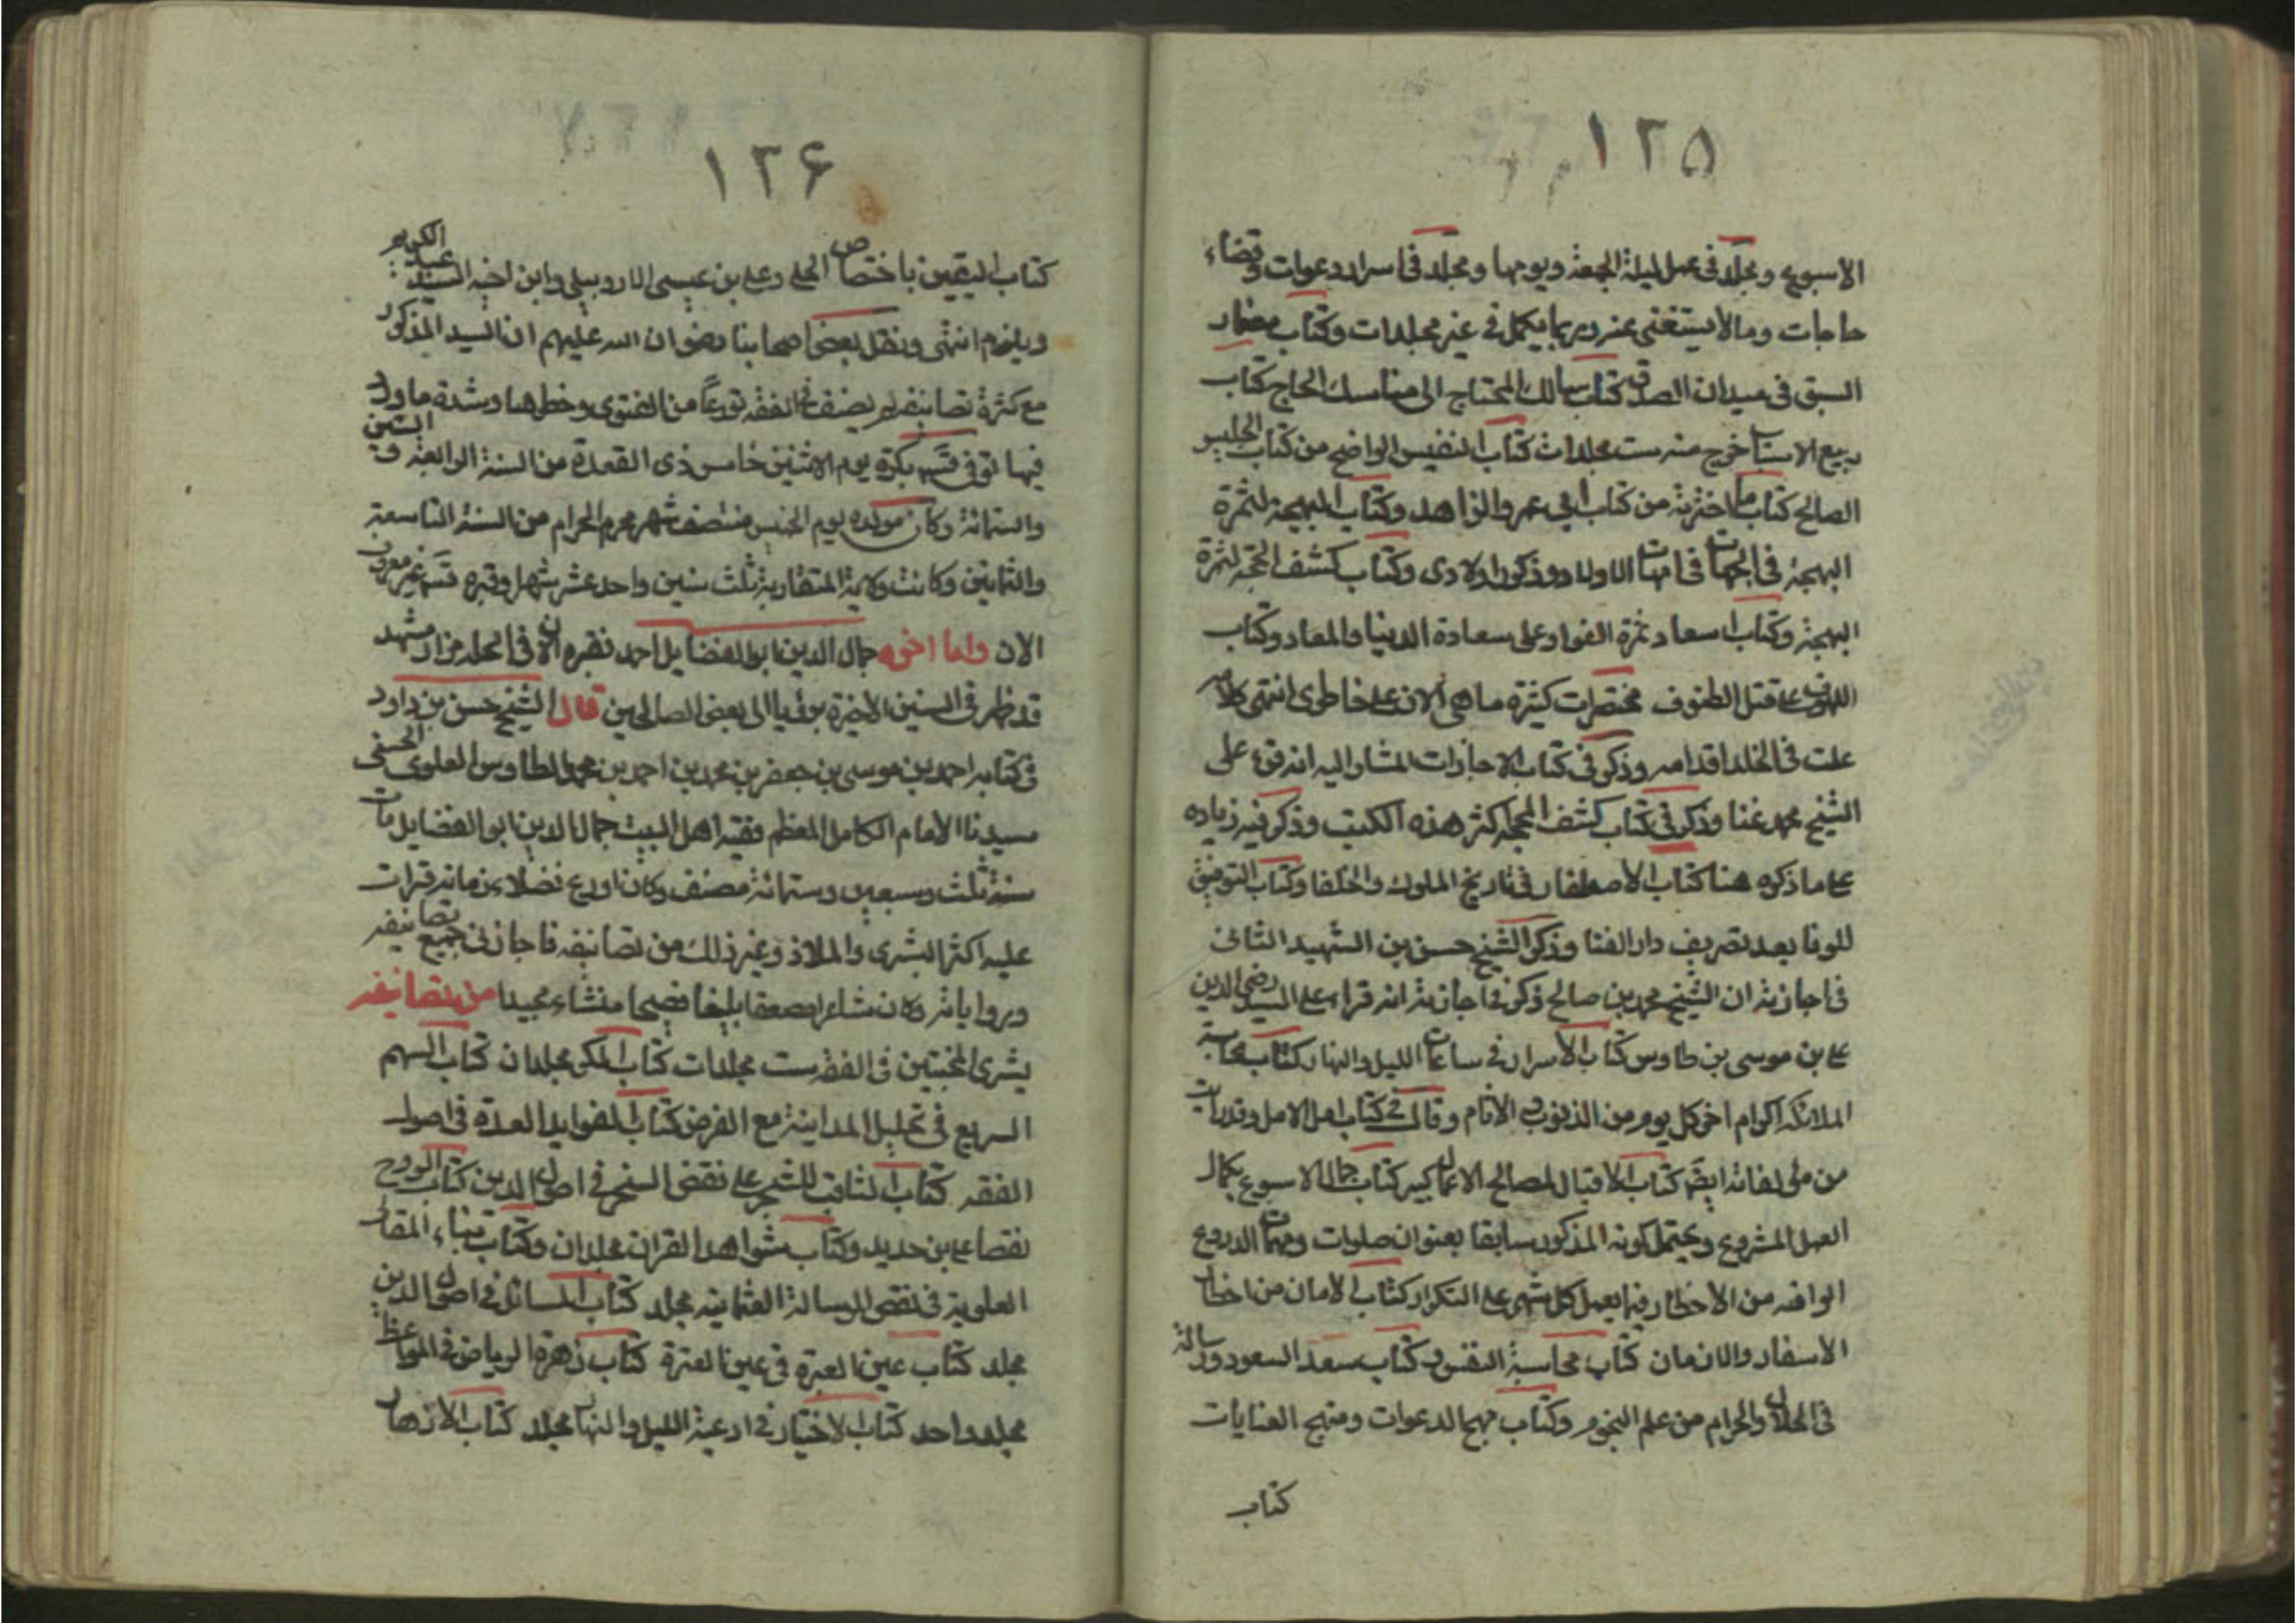 ١٢٥
الاسبوع ومجلد فى عمل ليلة الجمعة ويومها ومجلد فى اسرار دعوات وقضاء
حاجات وما لا يستغنى عنه وربما يكمل فى عشر مجلدات وكتاب مضمار
السبق فى ميدان الصدق كتاب مسالك المحتاج الى مناسك الحاج كتاب
ربيع الالباب خرج منه ست مجلدات كتاب النفيس الواضح من كتاب الجليس
الصالح كتاب ما اخترته من كتاب ابى عمر والزاهد وكتاب البهجة لثمرة
البهجة فى امهات الاولاد وذكر اولادى وكتاب كشف المحجه لثمرة
البهجة وكتاب اسعاد ثمرة الفواد على سعادة الدنيا والمعاد وكتاب
اللهوف على قتل الطفوف مختصرات كثيرة ما هى الان على خاطرى انتهى كلامه
علت فى الخلد اقدامه وذكر فى كتاب الاجازات المشار اليه انه قرء على
الشيخ محمد بن نما وذكر فى كتاب كشف المحجه اكثر هذه الكتب وذكر فيه زياده
على ما ذكره هنا كتاب الاصطفاء فى تاريخ الملوك والخلفا وكتاب التوفيق
للوفا بعد تصريف دار الفنا وذكر الشيخ حسن بن الشهيد الثانى
فى اجازته ان الشيخ محمد بن صالح ذكر فى اجازته انه قراء على السيد رضى الدين
على بن موسى بن طاوس كتاب الاسرار فى ساعات الليل والنهار كتاب محاسبة
الملائكة الكرام اخر كل يوم من الذنوب والاثام وقال فى كتاب امل الامل وقد رايت
من مؤلفاته ايضا كتاب الاقبال لمصالح الاعمال كبير كتاب جمال الاسبوع بكمال
العمل المشروع ويحتمل كونه المذكور سابقا بعنوان صلوات ومهمات الدروع
الواقيه من الاخطار فيما يعمل كل شهر على التكرار كتاب الامان من اخطار
الاسفار والازمان كتاب محاسبة النفس وكتاب سعد السعود ورسالة
فى الحلال والحرام من علم النجوم وكتاب مهج الدعوات ومنهج العنايات
كتاب
١٢۶
كتاب اليقين باختصاص الحلى وعلى بن عيسى الاروبيلى وابن اخيه السيد عبد الكريم
وغيرهم انتهى ونقل بعض اصحابنا رضوان الله عليهم ان السيد المذكور
مع كثرة تصانيفه لم يصنف فى الفقه تورعاً من الفتوى وخطرها وشدة ما ورد
فيها توفى قده بكرة يوم الاثنين خامس ذى القعدة من السنة الرابعة و الستين
والستمائة وكان مولده يوم الخميس منتصف شهر محرم الحرام من السنة التاسعة
والثمانين وكانت ولاية النقابة ثلث سنين واحد عشر شهرا وقبره قده غير معروف
الان واما اخوه جمال الدين ابو الفضايل احمد فقبره الان فى الحله مزار مشهد
قد ظهر فى السنين الاخيرة برؤيا الى بعض الصالحين قال الشيخ حسن بن داود
فى كتابه احمد بن موسى بن جعفر بن محمد بن احمد بن محمد الطاوس العلوى الحسنى
سيدنا الامام الكامل المعظم فقيه اهل البيت جمال الدين ابو الفضايل مات
سنة ثلث وسبعين وستمائة مصنف وكان اورع فضلاء زمانه قرات
عليه اكثر البشرى والملاذ وغير ذلك من تصانيفه فاجازنى جميع تصانيفه
ورواياته وكان شاعرا مصقعا بليغا فصيحا منشاء مجيدا من تصانيفه
بشرى المخبتين فى الفقه ست مجلدات كتاب الملاذ مجلدان كتاب السهم
السريع فى تحليل المداينة مع القرض كتاب الفوايد العدة فى اصول
الفقه كتاب الثاقب المسخر على نقض المشجر فى اصول الدين كتاب الروح
نقضا على بن حديد وكتاب شواهد القران مجلدان وكتاب بناء المقالة
العلوية فى نقض الرسالة العثمانيه مجلد كتاب المسائل فى اصول الدين
مجلد كتاب عين العبرة فى عين العترة كتاب زهرة الرياض فى المواعظ
مجلد واحد كتاب الاختيار فى ادعية الليل والنهار مجلد كتاب الازهار